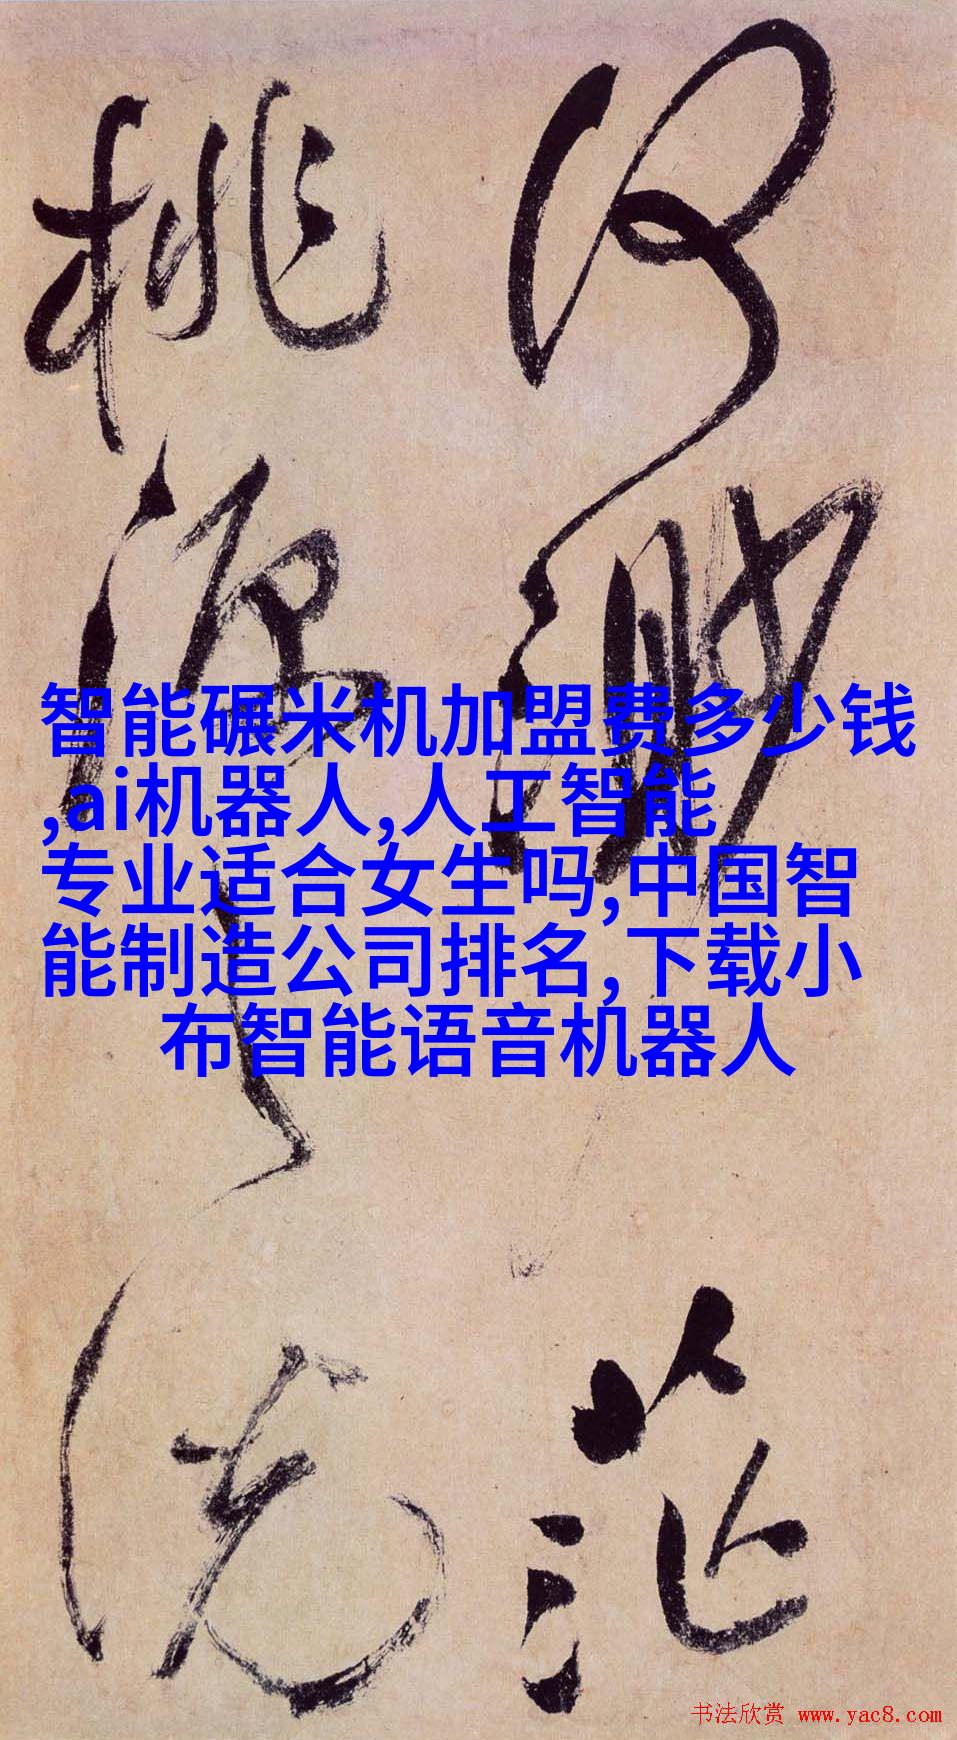 何渺茫
桃源之说
智能碾米机加盟费多少钱
,ai机器人,人工智能
专业适合女生吗,中国智
能制造公司排名,下载小
布智能语音机器人
书法欣赏 www.yac8.com